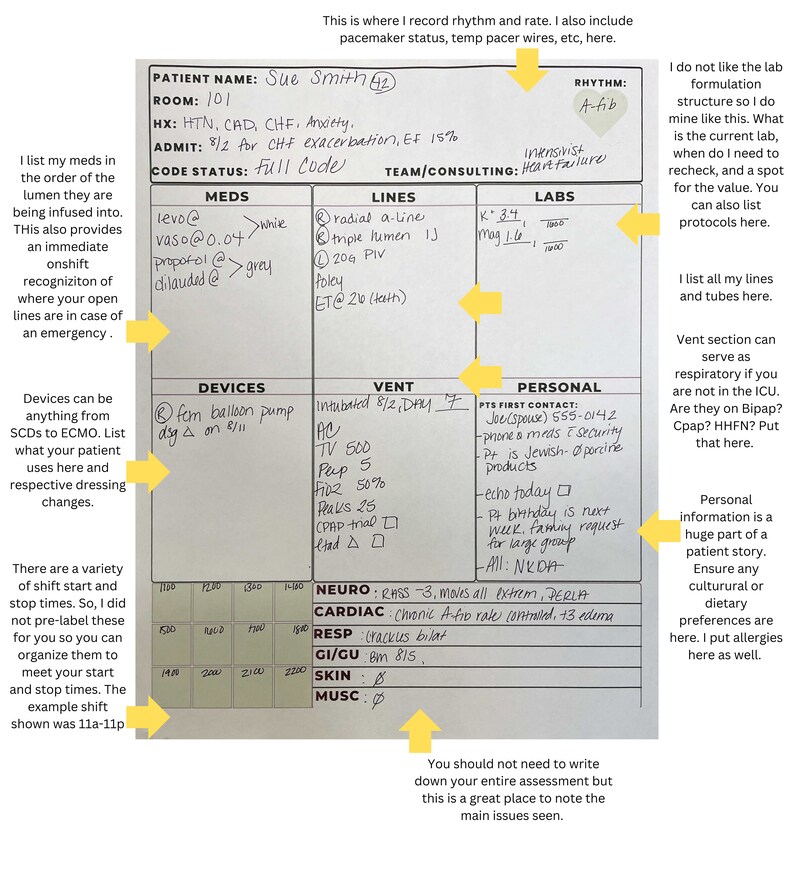 This is where I record rhythm and rate. I also include
pacemaker status, temp pacer wires, etc, here.
PATIENT NAME: Sue Smith 42
RHYTHM:
A-fib
ROOM: 101
HX: HTN, CAD, CHF, Anxiety,
ADMIT: 8/2 for CHF exacerbation, EF 15%
CODE STATUS: Full Code
TEAM/CONSULTING: Intensivist
Heart Failure
I do not like the lab
formulation
structure so I do
mine like this. What
is the current lab,
when do I need to
recheck, and a spot
for the value. You
can also list
protocols here.
I list my meds in
the order of the
lumen they are
being infused into.
THis also provides
an immediate
onshift
recogniziton of
where your open
lines are in case of
an emergency .
MEDS
levo @
vaso @ 0.04 > white
propofol @
dilauded @ > grey
LINES
R radial a-line
R triple lumen IJ
L 20G PIV
foley
ET @ 26 (teeth)
LABS
K+ 3.4, 1600
Mag 1.6, 1600
I list all my lines
and tubes here.
Vent section can
serve as
respiratory if you
are not in the ICU.
Are they on Bipap?
Cpap? HHFN? Put
that here.
Devices can be
anything from
SCDs to ECMO. List
what your patient
uses here and
respective dressing
changes.
DEVICES
R fem balloon pump
dsg Δ on 8/11
VENT
Intubated 8/2, DAY 7
AC
TV 500
Peep 5
FiO2 50%
Peaks 25
CPAP trial □
Etad Δ □
PERSONAL
PTS FIRST CONTACT:
Joe (spouse) 555-0142
- phone & meds c̄ security
- Pt is Jewish- Ø porcine
products
- echo today □
- Pt birthday is next
week, family request
for large group
- All: NKDA
Personal
information is a
huge part of a
patient story.
Ensure any
culturural or
dietary
preferences are
here. I put allergies
here as well.
There are a variety
of shift start and
stop times. So, I did
not pre-label these
for you so you can
organize them to
meet your start
and stop times. The
example shift
shown was 11a-11p
1100 1200 1300 1400
1500 1600 1700 1800
1900 2000 2100 2200
NEURO : RASS -3, moves all extrem, PERLA
CARDIAC : Chronic A-fib rate controlled, +3 edema
RESP : Crackles bilat
GI/GU : Bm 8/5,
SKIN : Ø
MUSC : Ø
You should not need to write
down your entire assessment but
this is a great place to note the
main issues seen.